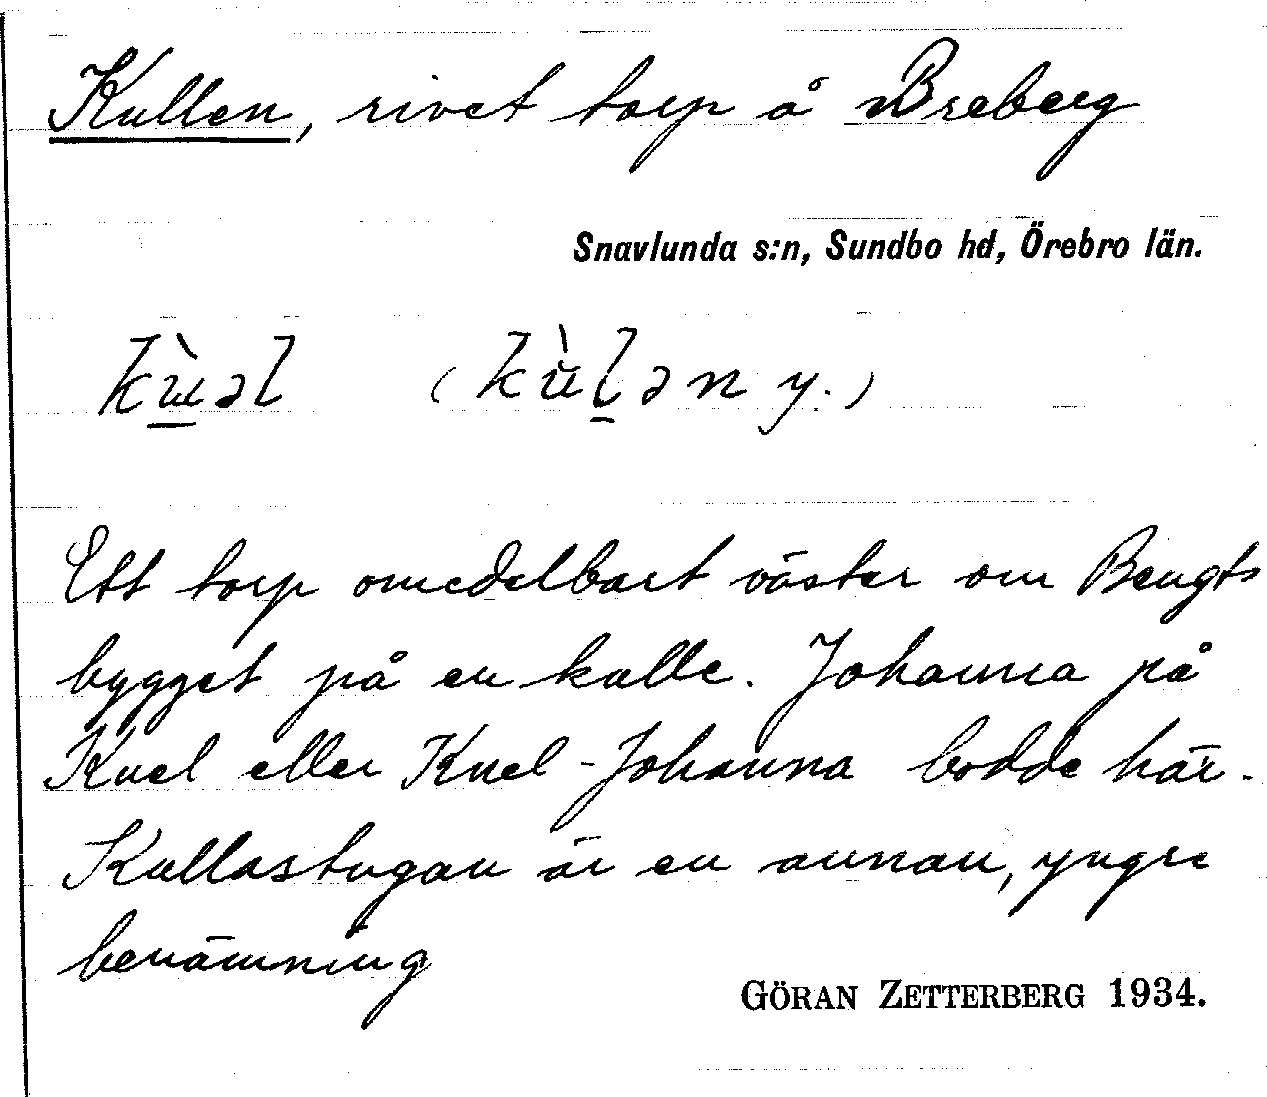 Kullen, rivet torp å Breberg
Snavlunda s:n, Sundbo hd, Örebro län.
kùəl (kùləny.)
Ett torp omedelbart väster om Bengts
bygget på en kulle. Johanna på
Kuel eller Kuel-Johanna bodde här.
Kullastugan är en annan, yngre
benämning
GÖRAN ZETTERBERG 1934.